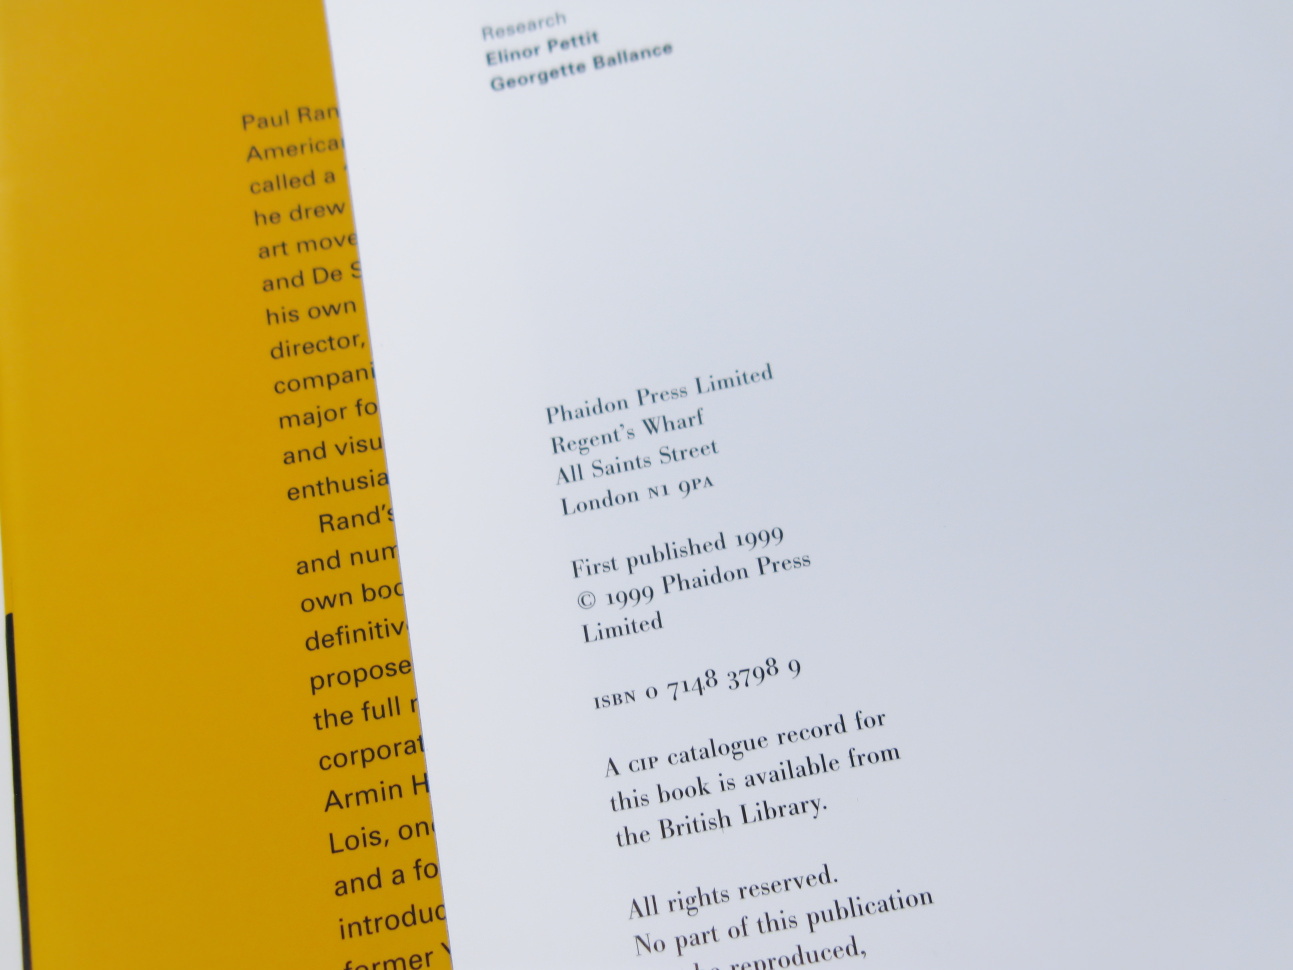 Paul Ran
America
called a
he drew
art move
and De S
his own
director,
compani
major fo
and visu
enthusia
Rand's
and num
own boo
definitiv
propose
the full r
corporat
Armin H
Lois, on
and a fo
introduc
former
Research
Elinor Pettit
Georgette Ballance
Phaidon Press Limited
Regent's Wharf
All Saints Street
London N1 9PA
First published 1999
© 1999 Phaidon Press
Limited
ISBN 0 7148 3798 9
A CIP catalogue record for
this book is available from
the British Library.
All rights reserved.
No part of this publication
reproduced,